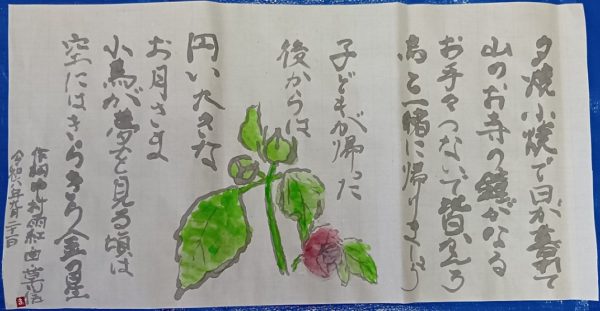 夕焼小焼で日が暮れて
山のお寺の鐘がなる
お手々つないで皆かえろ
烏と一緒に帰りましょう
子どもが帰った
後からは
円い大きな
お月さま
小鳥が夢を見る頃は
空にはきらきら金の星
作詞中村雨紅